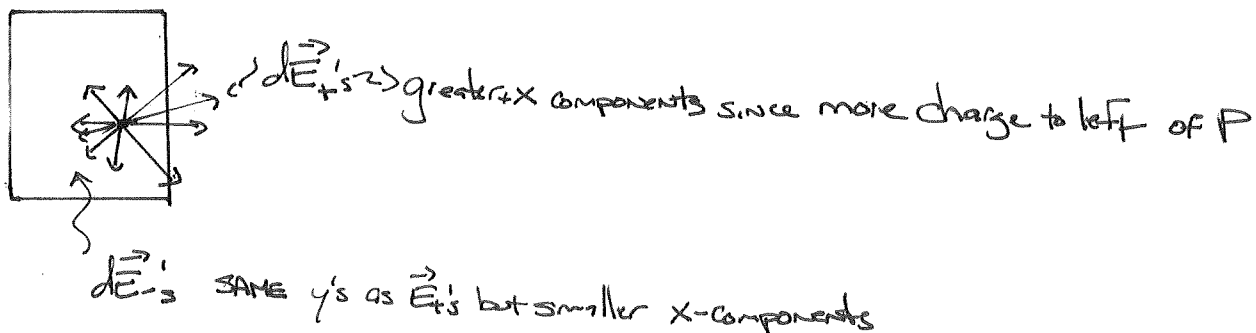 dE⃗₊'s => greater +x components since more charge to left of P
dE⃗₋'s SAME y's as E⃗₊'s but smaller x-components